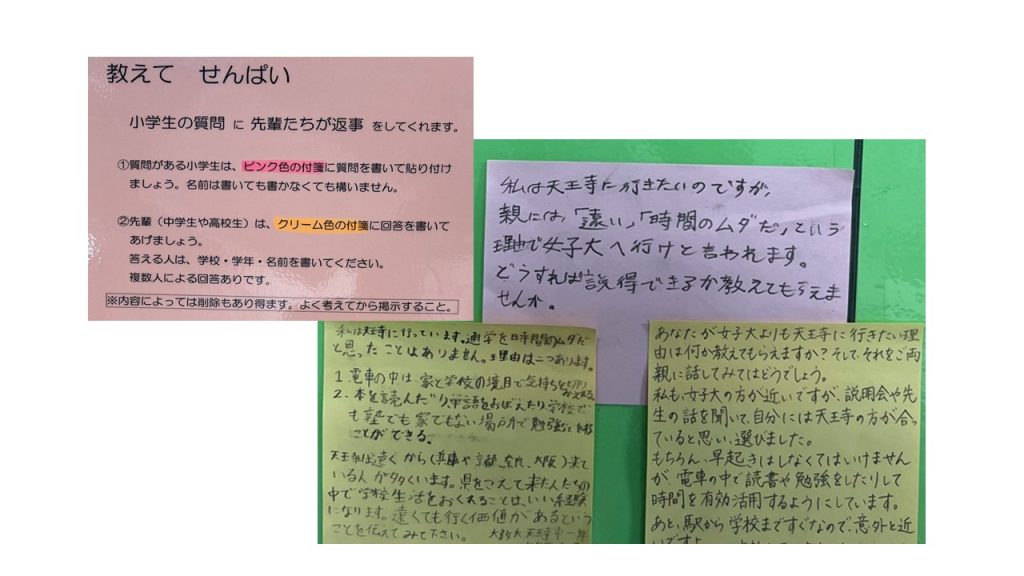 教えて せんぱい
小学生の質問 に 先輩たちが返事 をしてくれます。
①質問がある小学生は、ピンク色の付箋に質問を書いて貼り付け
ましょう。名前は書いても書かなくても構いません。
②先輩（中学生や高校生）は、クリーム色の付箋に回答を書いて
あげましょう。
答える人は、学校・学年・名前を書いてください。
複数人による回答ありです。
※内容によっては削除もあり得ます。よく考えてから掲示すること。
私は天王寺に行きたいのですが、
親には、「遠い」、「時間のムダだ」という
理由で女子大へ行けと言われます。
どうすれば説得できるか教えてもらえま
せんか。
私は天王寺に行っています。通学を時間のムダだ
と思ったことはありません。理由は二つあります。
1.電車の中は、家と学校の境目で気持ちを切り
2.本を読んだり単語をおぼえたり学校で
も塾でも家でもない場所で勉強など
ことができる。
天王寺は遠くから(兵庫や京都、奈良、大阪)来て
いる人が多くいます。県をこえて来た人たちの
中で学校生活をおくれることは、いい経験
になります。遠くても行く価値があるという
ことを伝えてみて下さい。 天王寺中一年
あなたが女子大よりも天王寺に行きたい理
由は何か教えてもらえますか？そして、それをご両
親に話してみてはどうでしょう。
私も、女子大の方が近いですが、説明会や先
生の話を聞いて、自分には天王寺の方が合っ
ていると思い、選びました。
もちろん、早起きはしなくてはいけません
が、電車の中で読書や勉強をしたりして
時間を有効活用するようにしています。
あと、駅から学校まですぐなので、意外と近
いですよ